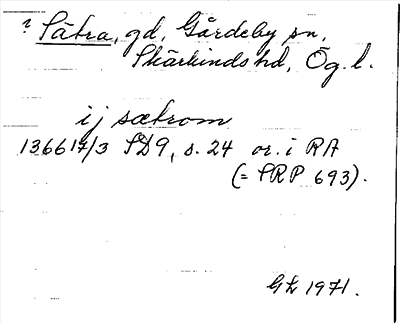 ? Sätra, gd, Gårdeby sn,
Skärkinds hd, Ög. l.
ij sætrom
1366 17/3 SD9, s. 24 or. i RA
(= SRP 693).
Gk 1971.